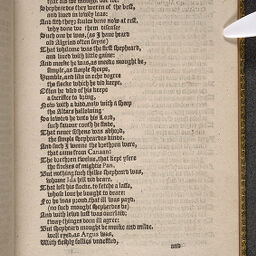 Shepheardes they weren of the best,
and lived in lowly leas:
And sith theyr soules bene now at rest,
why done we them disease?
Such one he was, (as I have heard
old Algrind often sayne)
That whilome was the first shepheard,
and lived with little gayne:
And meeke he was, as meeke mought be,
simple, as simple sheepe,
Humble, and like in eche degree
the flocke which he did keepe.
Often he used of his keepe
a sacrifice to bring,
Now with a Kidde, now with a sheepe
the Altars hallowing.
So lowted he unto his Lord,
such favour couth he find,
That never sithens was abhord,
the simple shepheards kind.
And such I weene the brethren were,
that came from Canaan:
The brethren twelue, that kept yfere
the flockes of mighty Pan.
But nothing such thilke shephearde was,
whome Ida hill did beare,
That left his flocke, to fetche a lasse,
whose love he bought to deare:
For he was proude, that ill was payd,
(no such mought shepheards bee)
And with lewde lust was ouerlaid:
tway things doen ill agree:
But shepheard mought be meeke and milde,
well eyed, as Argus was,
With fleshly follies undefyled,
and